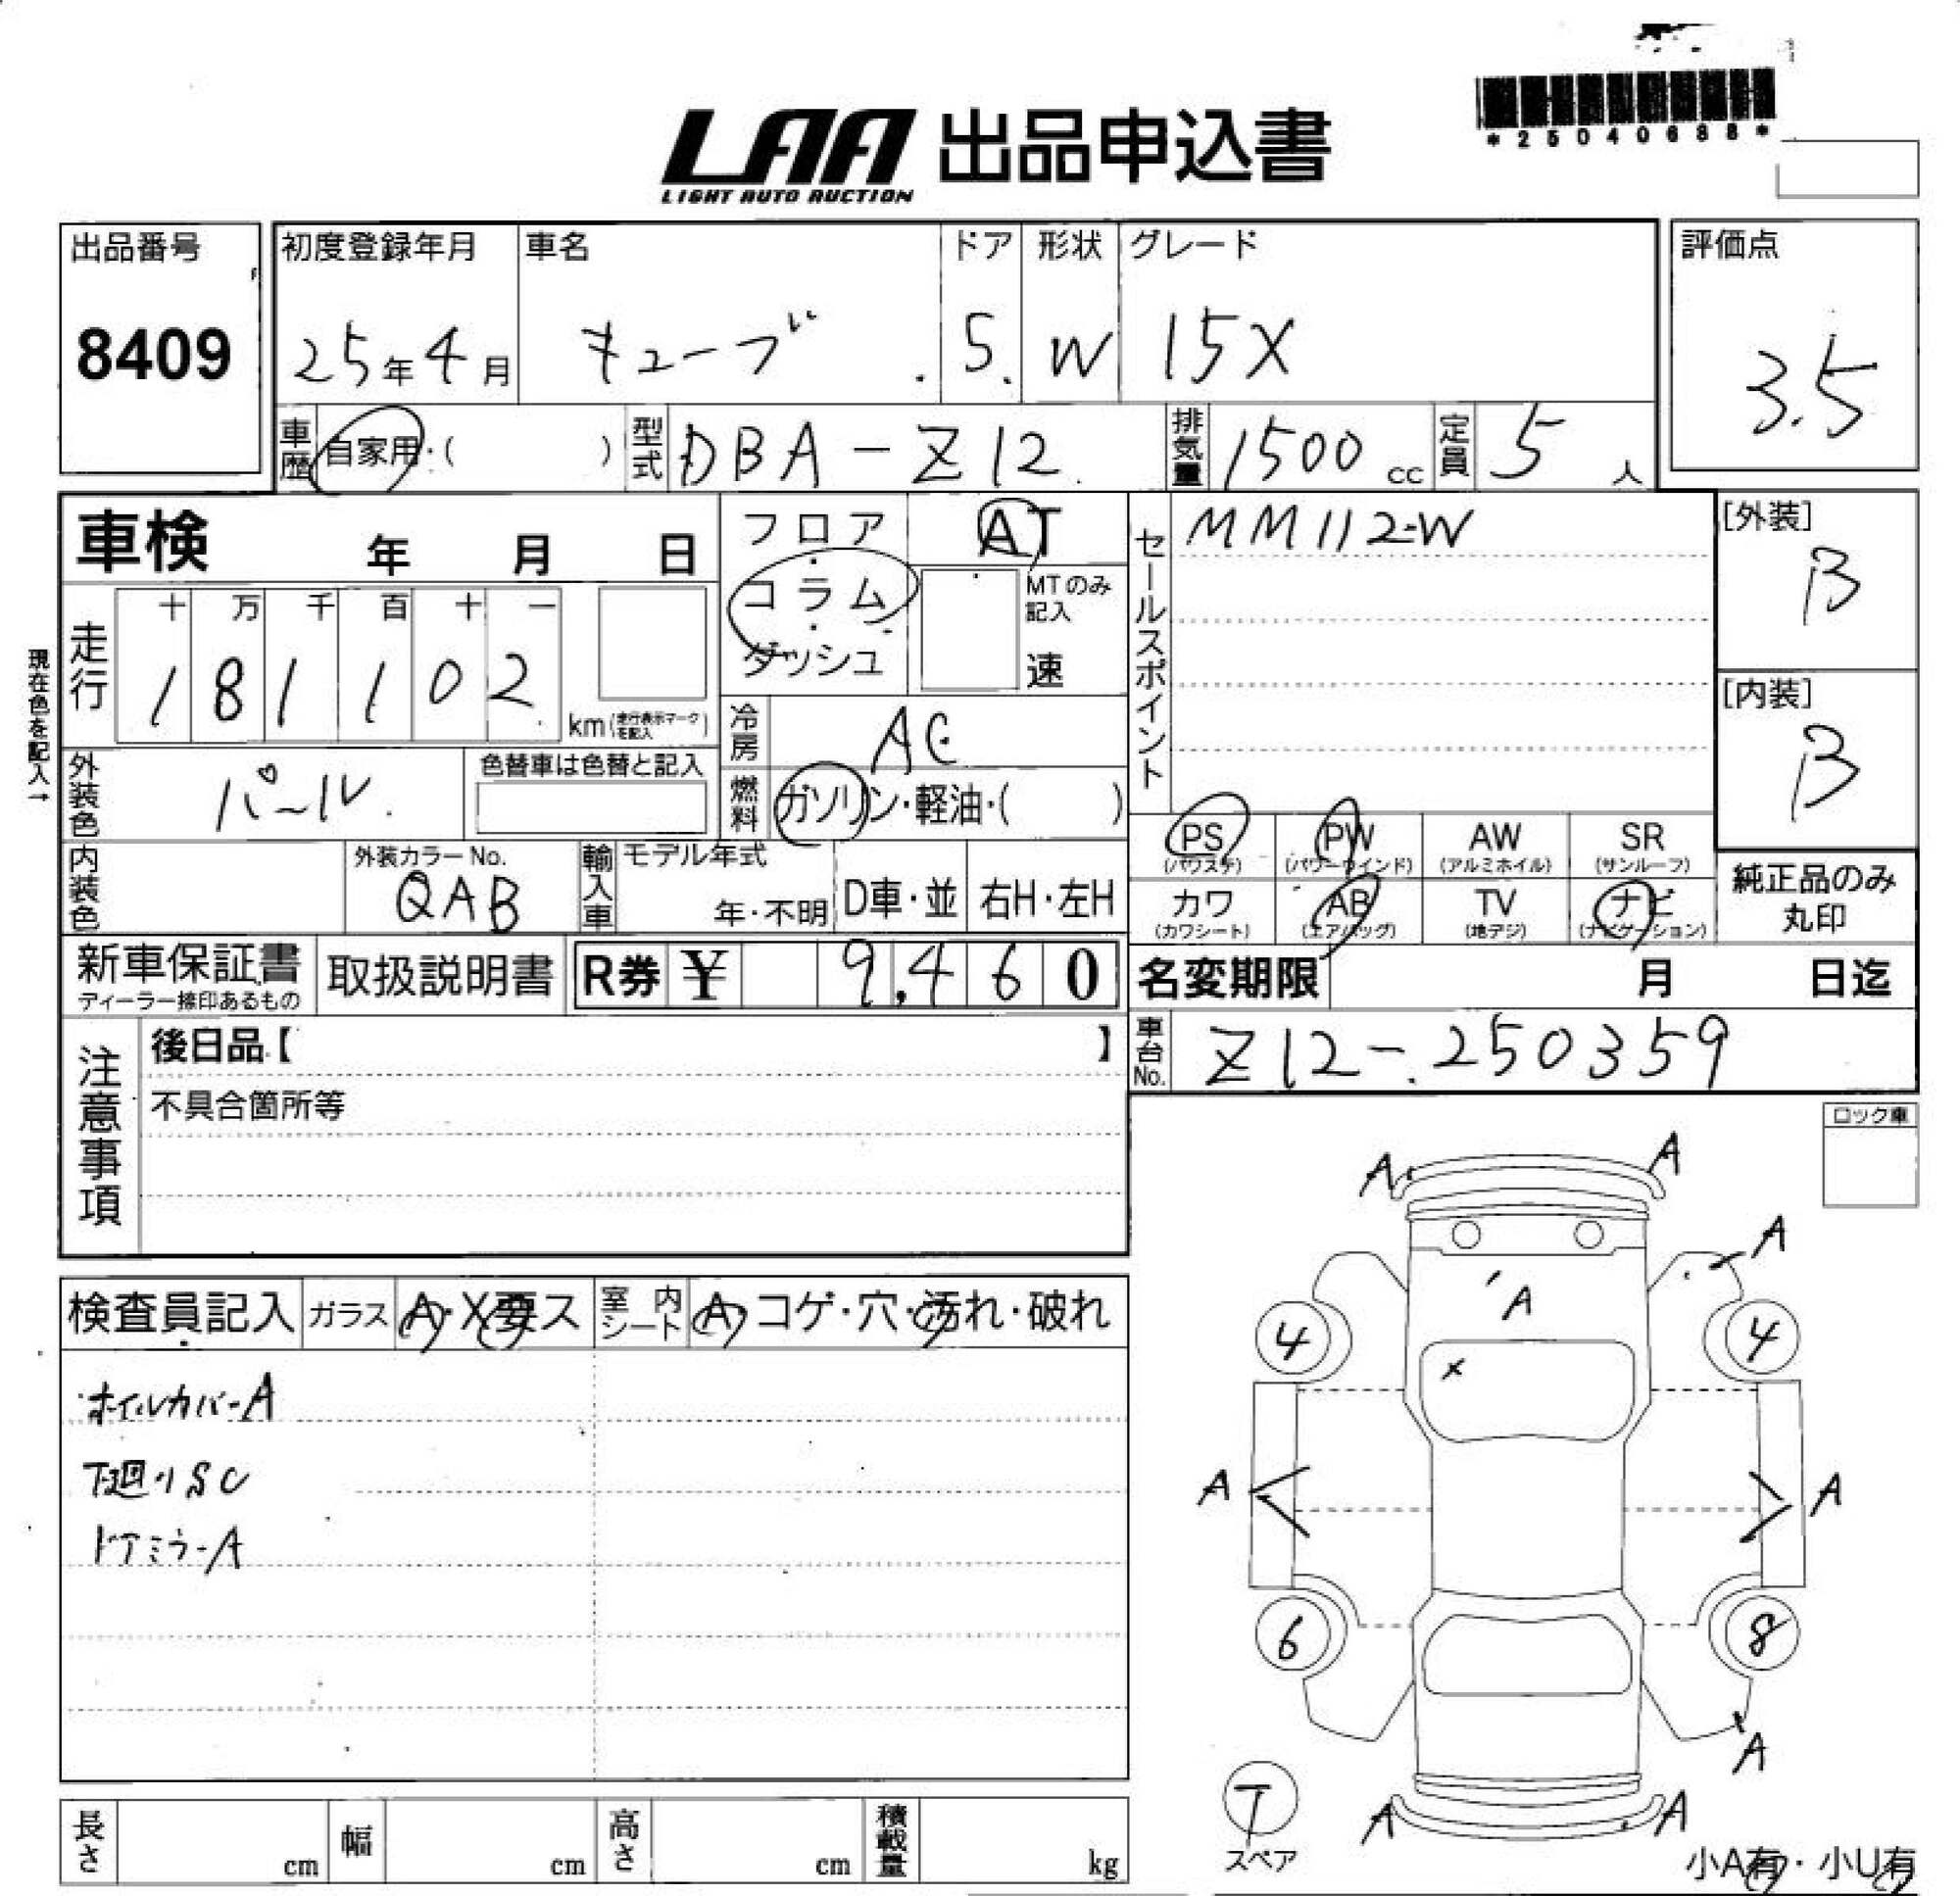 *25040688*
LAA 出品申込書
LIGHT AUTO AUCTION
出品番号
8409
初度登録年月 車名 ドア 形状 グレード
25年4月 キューブ 5 W 15X
評価点
3.5
車歴 自家用・( ) 型式 DBA-Z12 排気量 1500cc 定員 5人
車検 年 月 日
フロア・コラム・ダッシュ
AT
MTのみ記入
速
セールスポイント
MM112-W
[外装]
B
[内装]
B
現在色を記入→
走行 十 万 千 百 十 一
181102
km(走行表示マークを記入)
冷房 AC
外装色 パール
色替車は色替と記入
燃料 ガソリン・軽油・( )
PS (パワステ) PW (パワーウインド) AW (アルミホイル) SR (サンルーフ)
カワ (カワシート) AB (エアバッグ) TV (地デジ) ナビ (ナビゲーション)
純正品のみ丸印
内装色
外装カラーNo.
QAB
輸入車 モデル年式
年・不明 D車・並 右H・左H
新車保証書
ディーラー捺印あるもの
取扱説明書
R券 ¥ 9,460
名変期限 月 日迄
車台No. Z12-250359
注意事項
後日品【 】
不具合箇所等
ロック車
検査員記入 ガラス A・X要ス 室内シート A・コゲ・穴・汚れ・破れ
ホイルカバーA
下廻りSC
ドアミラーA
A A
A
A
4 4
X
A A
6 8
A
A A
T
スペア
小A有・小U有
長さ cm 幅 cm 高さ cm 積載量 kg